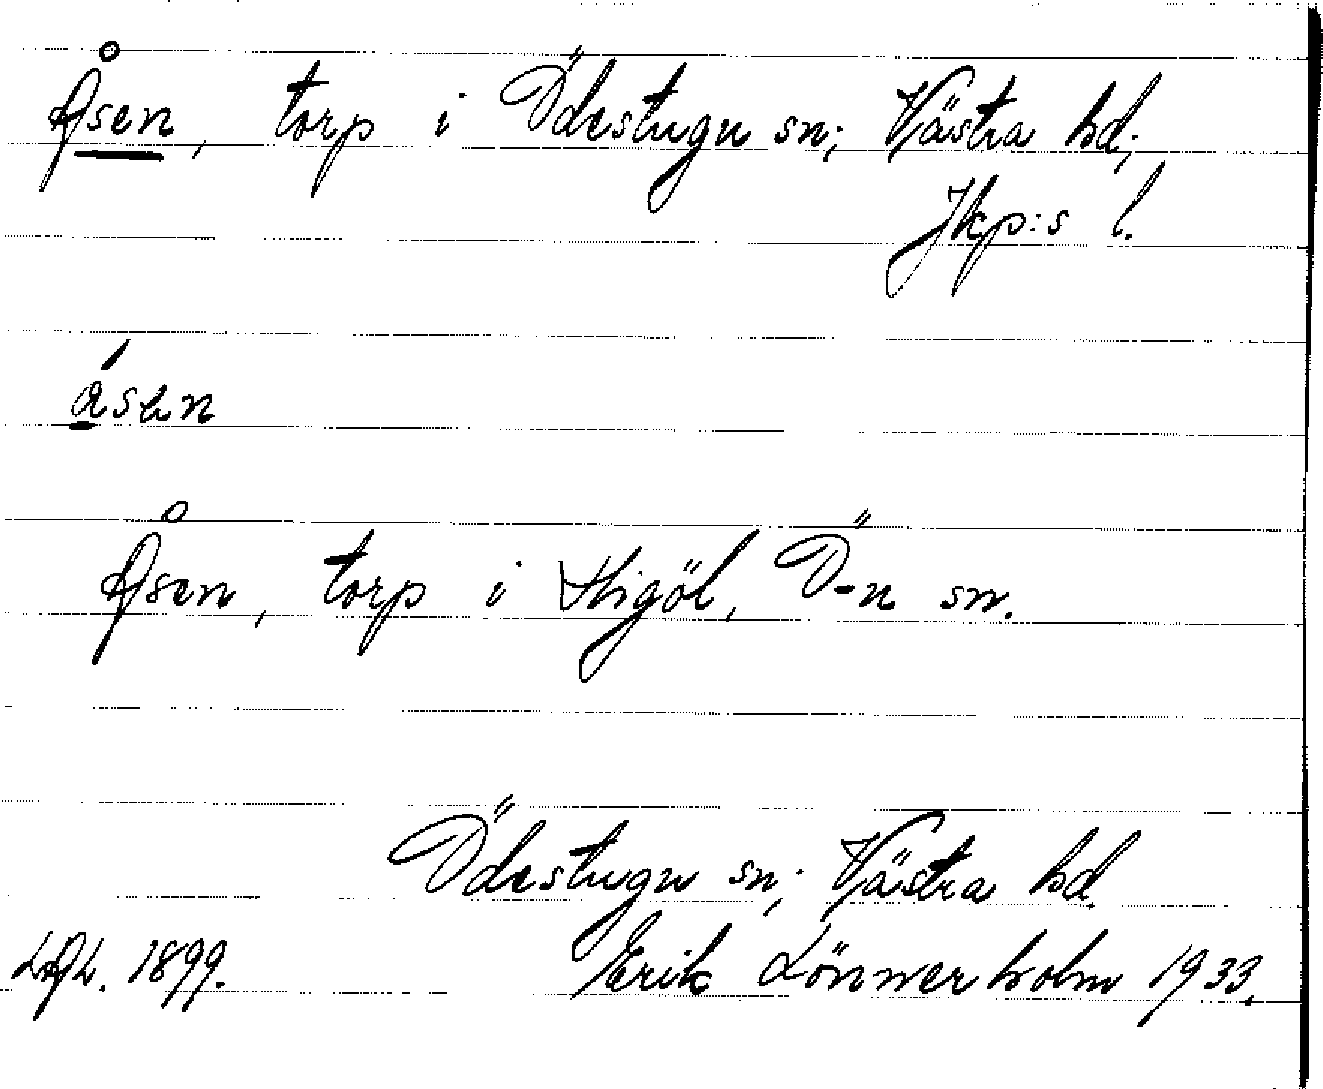 Åsen, torp i Ödestugu sn; Västra hd;
Jkp:s l.
ásen
Åsen, torp i Stigöl, Ö-u sn.
Ödestugu sn; Västra hd.
1899. Erik Lönnerholm 1933.